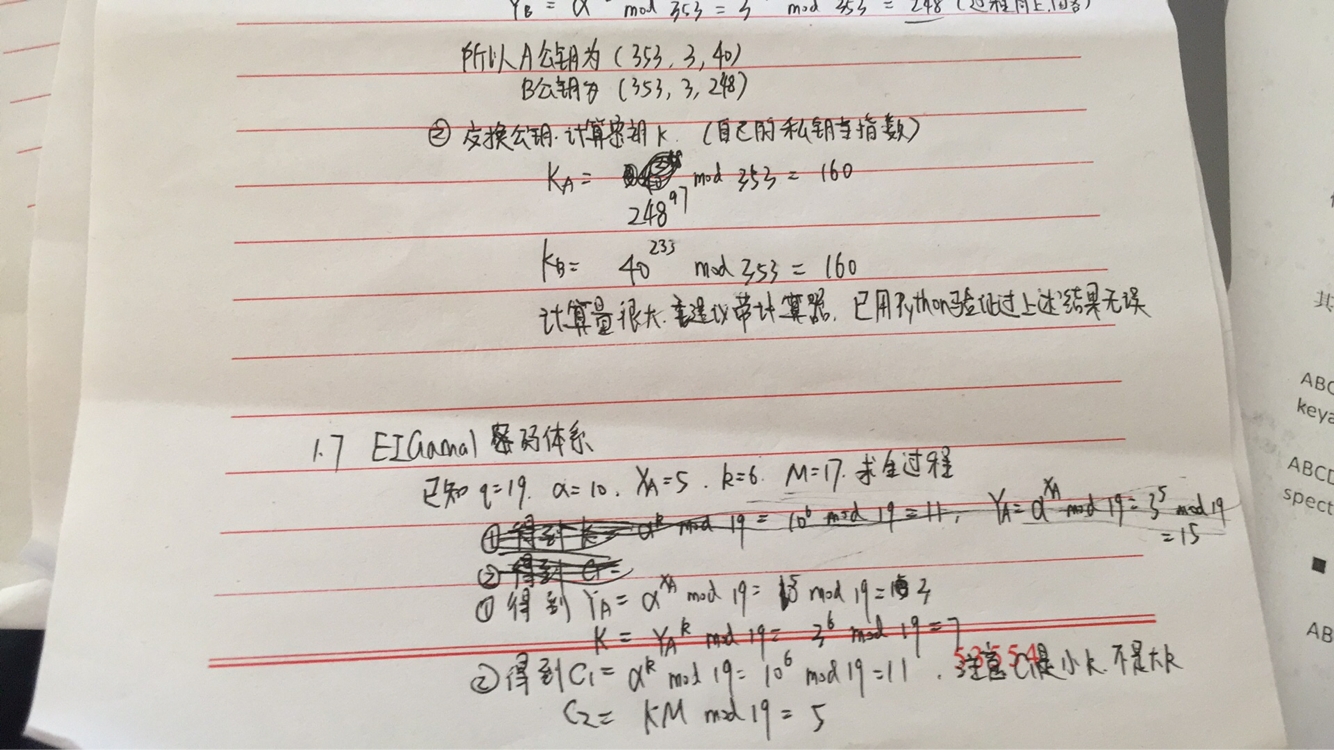 YB = α mod 353 = 3 mod 353 = 248 (过程同上,
所以A公钥为 (353, 3, 40)
B公钥为 (353, 3, 248)
② 交换公钥.计算密钥K. (自己的私钥当指数)
KA = mod 353 = 160
248^97
KB = 40^233 mod 353 = 160
计算量很大.建议带计算器, 已用Python验证过上述结果无误
1.7 ElGamal 密码体系
已知 q=19. α=10. XA=5. k=6. M=17. 求全过程
① 得到 K = α^k mod 19 = 10^6 mod 19 = 11, YA = α^XA mod 19 = 3^5 mod 19
= 15
② 得到 C1 =
① 得到 YA = α^XA mod 19 = mod 19 = 3
K = YA^k mod 19 = 3^6 mod 19 = 7
② 得到 C1 = α^k mod 19 = 10^6 mod 19 = 11, 注意C1是小k.不是大K
C2 = KM mod 19 = 5
ABC
keya
ABCD
spect
AB